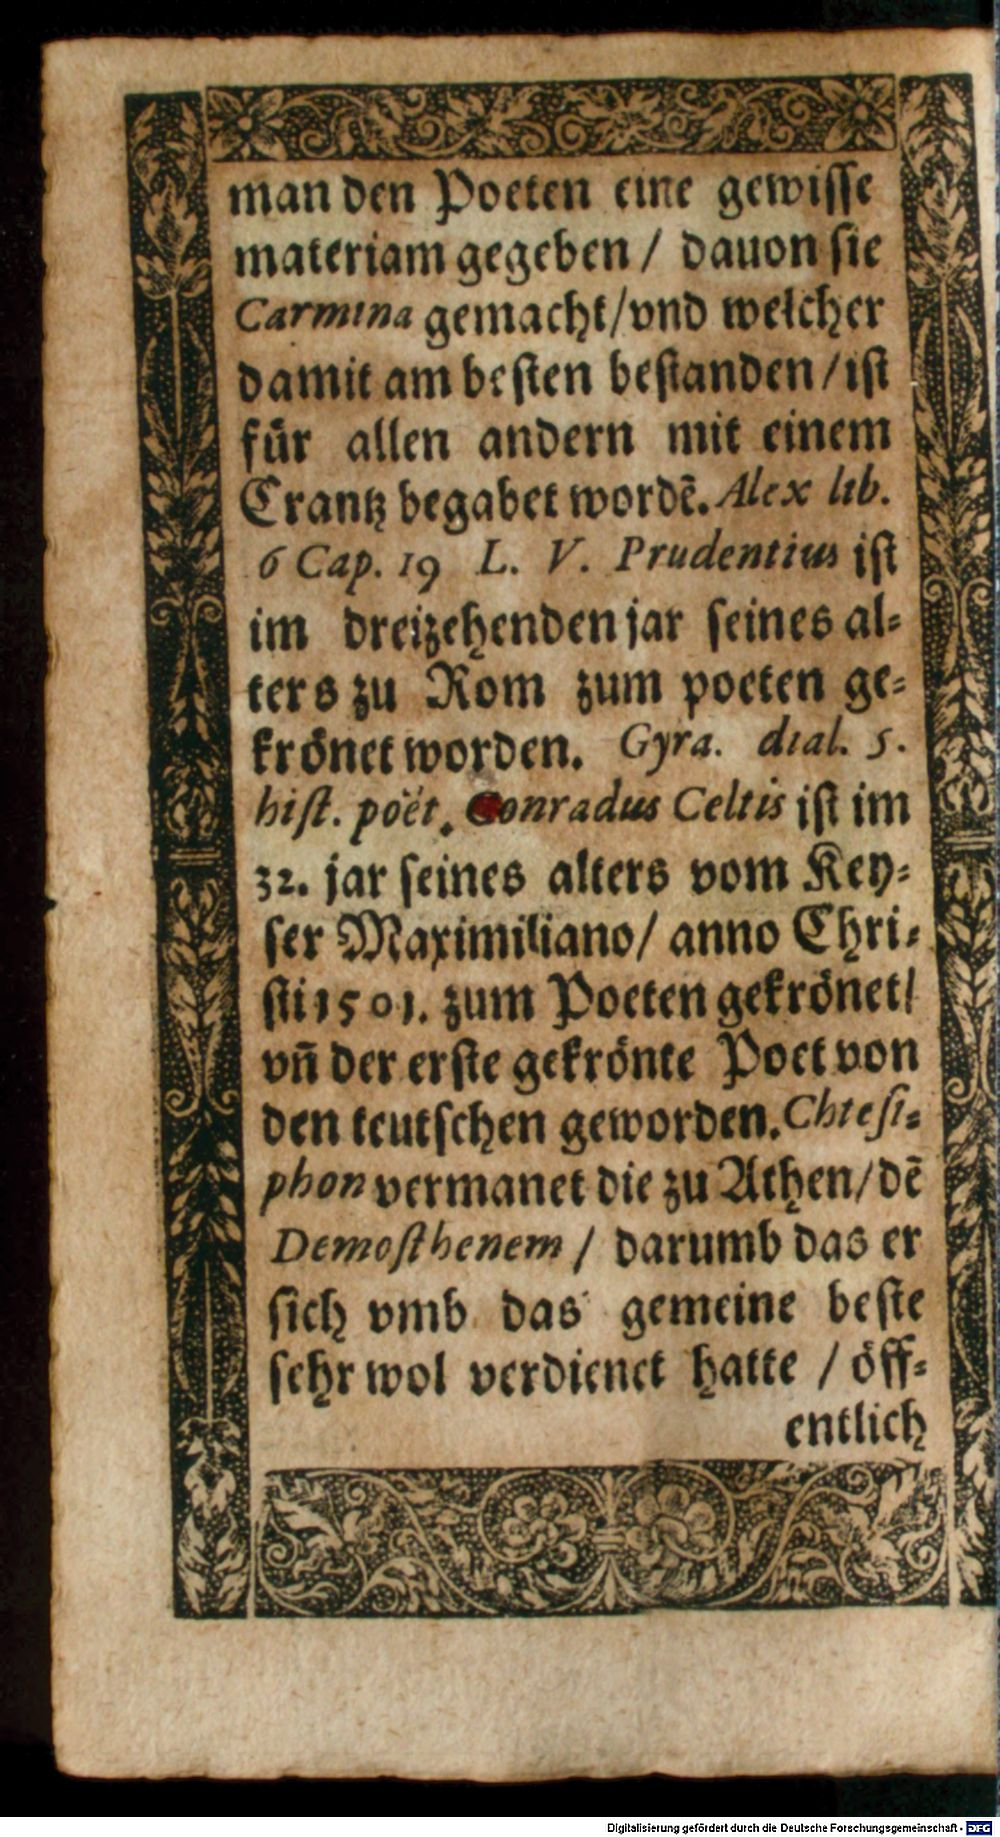 man den Poeten eine gewisse
materiam gegeben / dauon sie
Carmina gemacht/vnd welcher
damit am besten bestanden/ist
für allen andern mit einem
Crantz begabet wordẽ. Alex lib.
6 Cap. 19 L. V. Prudentius ist
im dreizehenden jar seines al-
ters zu Rom zum poeten ge-
krönet worden. Gyra. dial. 5.
hist. poët. Conradus Celtis ist im
32. jar seines alters vom Key-
ser Maximiliano/ anno Chri-
sti 1501. zum Poeten gekrönet/
vñ der erste gekrönte Poet von
den teutschen geworden. Chtesi-
phon vermanet die zu Athen/dẽ
Demosthenem / darumb das er
sich vmb das gemeine beste
sehr wol verdienet hatte / öff-
entlich
Digitalisierung gefördert durch die Deutsche Forschungsgemeinschaft - DFG